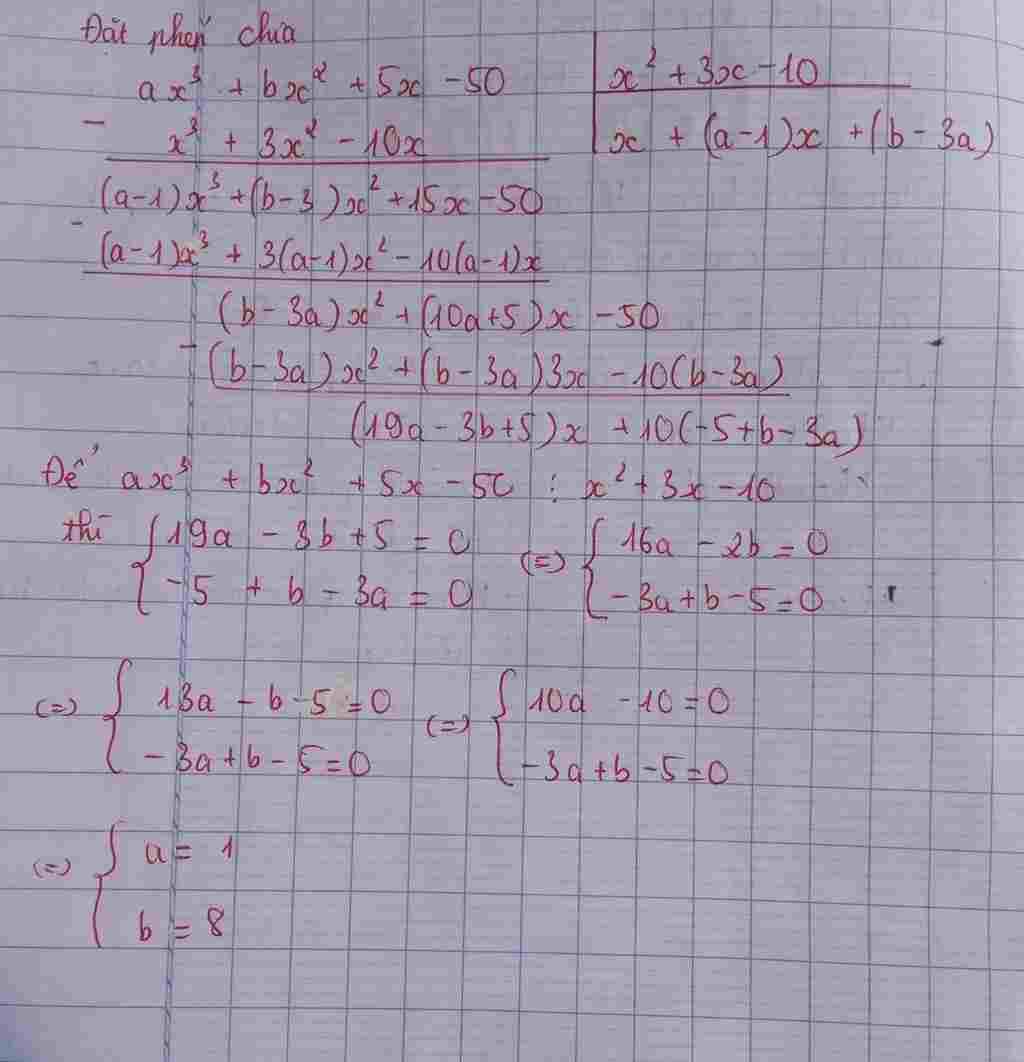 Đặt phép chia
ax³ + bx² + 5x - 50 | x² + 3x - 10
- x³ + 3x² - 10x | x + (a-1)x + (b-3a)
(a-1)x³ + (b-3)x² + 15x - 50
- (a-1)x³ + 3(a-1)x² - 10(a-1)x
(b-3a)x² + (10a+5)x - 50
- (b-3a)x² + (b-3a)3x - 10(b-3a)
(19a - 3b+5)x + 10(-5+b-3a)
Để ax³ + bx² + 5x - 50 ⋮ x² + 3x - 10
thì { 19a - 3b + 5 = 0 (=) { 16a - 2b = 0
-5 + b - 3a = 0 -3a + b - 5 = 0
(=) { 13a - b - 5 = 0 (=) { 10a - 10 = 0
-3a + b - 5 = 0 -3a + b - 5 = 0
(=) { a = 1
b = 8